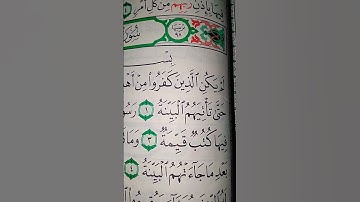 فِيهَا بِإِذْنِ رَبِّهِم مِّن كُلِّ أَمْرٍ
سُورَةُ
بِسْمِ
لَمْ يَكُنِ الَّذِينَ كَفَرُوا مِنْ أَهْلِ
حَتَّىٰ تَأْتِيَهُمُ الْبَيِّنَةُ ١ رَسُولٌ
فِيهَا كُتُبٌ قَيِّمَةٌ ٣ وَمَا
بَعْدِ مَا جَاءَتْهُمُ الْبَيِّنَةُ ٤